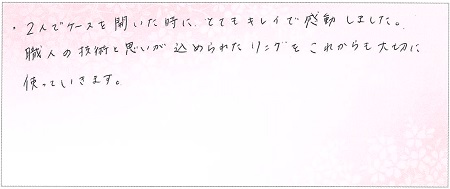 ・2人でケースを開いた時に、とてもキレイで感動しました。
職人の技術と思いが込められたリングをこれからも大切に
使っていきます。